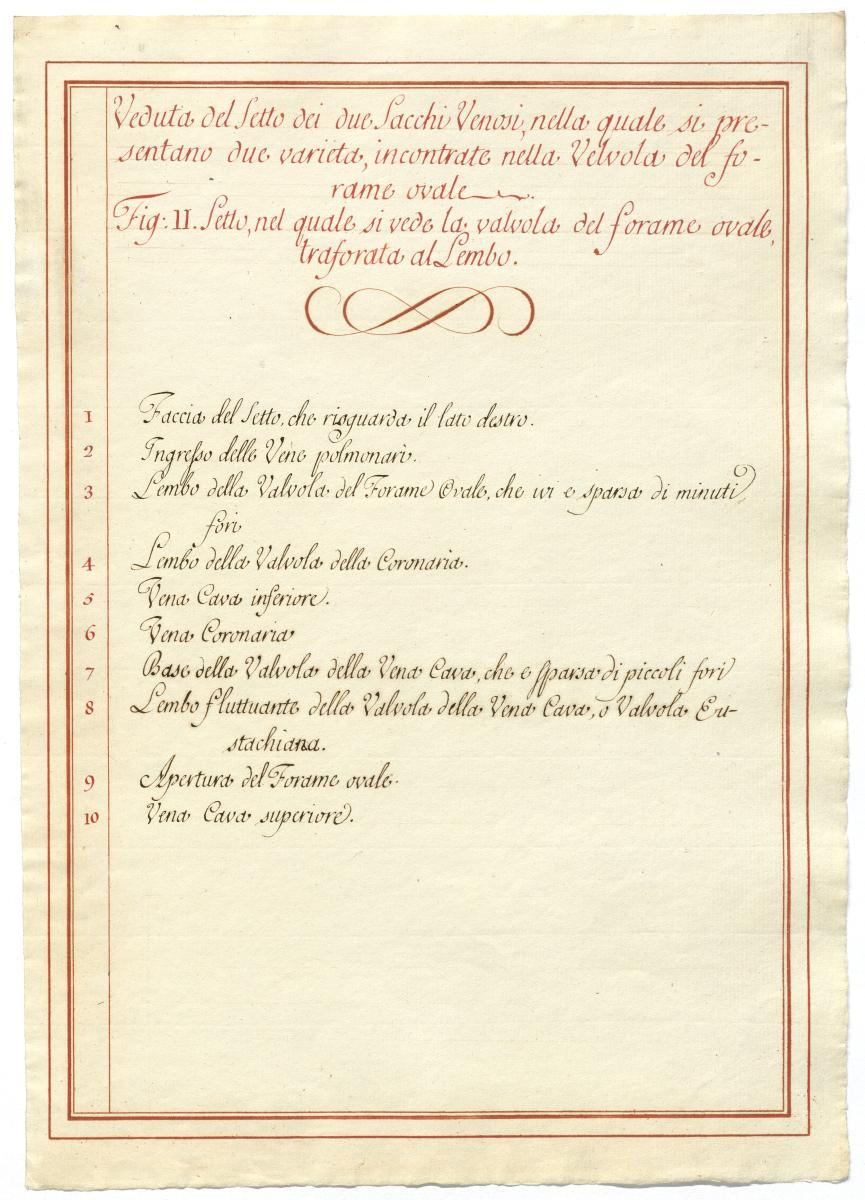 Veduta del Setto dei due Sacchi Venosi, nella quale si pre-
sentano due varieta, incontrate nella Velvola del fo-
rame ovale.
Fig: II. Setto, nel quale si vede la valvola del forame ovale,
traforata al Lembo.
1 Faccia del Setto, che risguarda il lato destro.
2 Ingresso delle Vene polmonari.
3 Lembo della Valvola del Forame Ovale, che ivi e sparsa di minuti
fori
4 Lembo della Valvola della Coronaria.
5 Vena Cava inferiore.
6 Vena Coronaria
7 Base della Valvola della Vena Cava, che e sparsa di piccoli fori
8 Lembo fluttuante della Valvola della Vena Cava, o Valvola Eu-
stachiana.
9 Apertura del Forame ovale.
10 Vena Cava superiore.